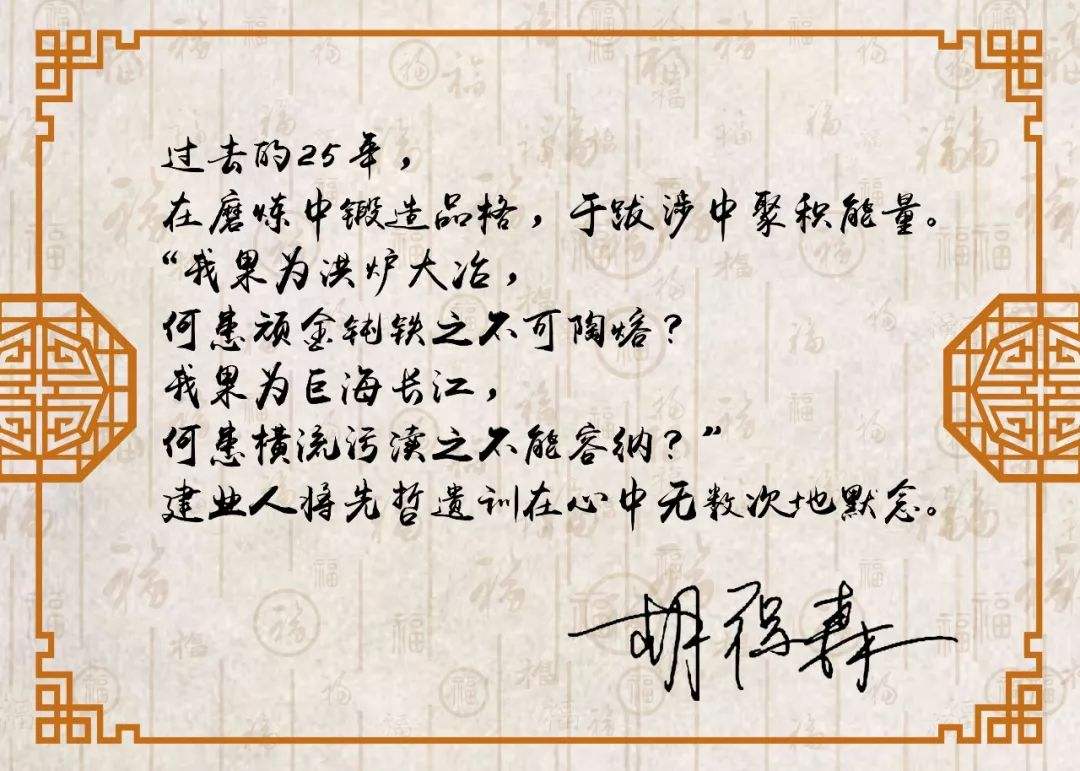 过去的25年，
在磨炼中锻造品格，于跋涉中聚积能量。
“我果为洪炉大冶，
何患顽金钝铁之不可陶熔？
我果为巨海长江，
何患横流污渎之不能容纳？”
建业人将先哲遗训在心中无数次地默念。
胡葆森